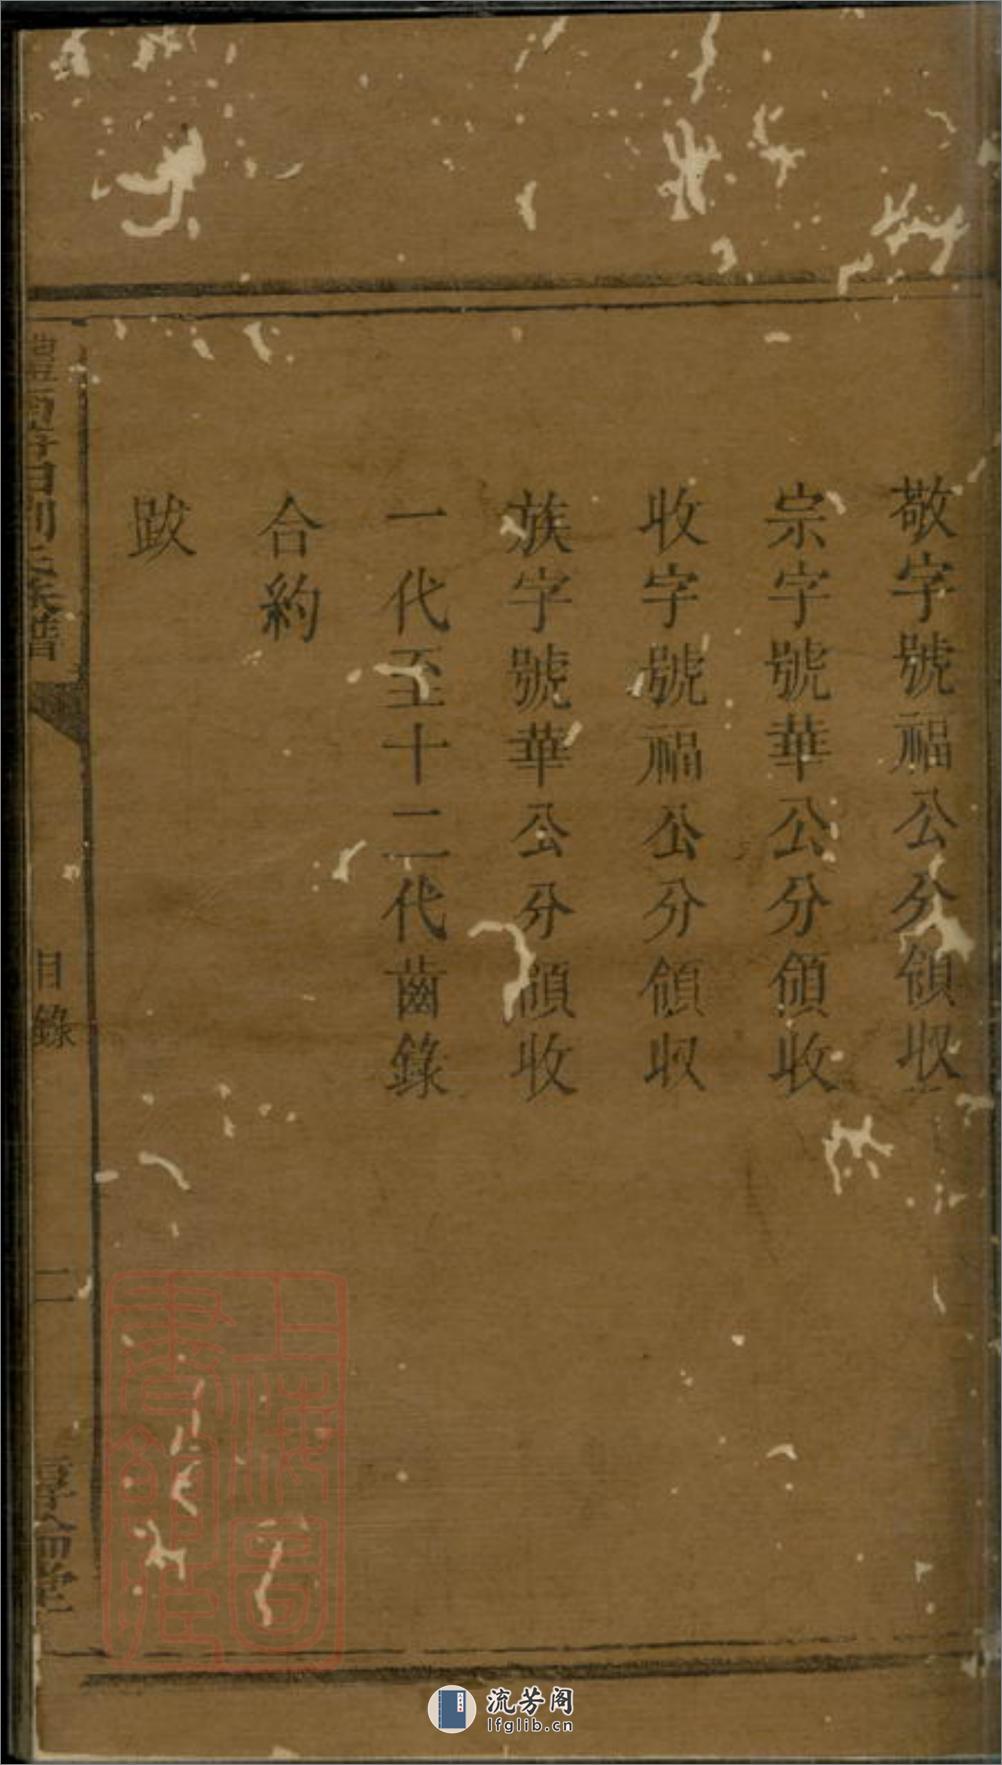 敬字號福公分領収
宗字號華公分領收
收字號福公分領収
族字號華公分領收
一代至十二代齒錄
合約
跋
目錄
二
上海圖書館藏
流芳阁
lfglib.cn